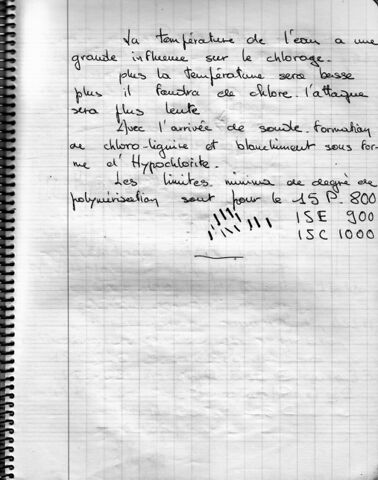 La température de l'eau a une
grande influence sur le chlorage.
plus la température sera basse
plus il faudra de chlore. l'attaque
sera plus lente
Avec l'arrivée de soude. formation
de chloro-lignine et blanchiment sous for-
me d'Hypochlorite.
Les limites minima de degré de
polymérisation sont pour le 15 P. 800
15E 900
15C 1000